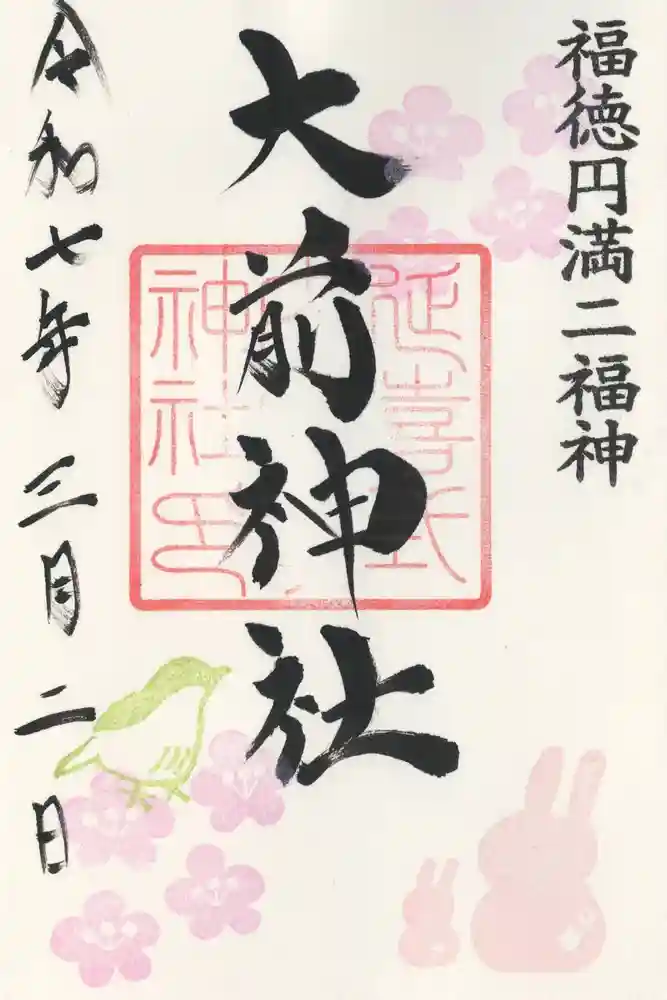 福徳円満二福神
大前神社
延喜式
神社印
令和七年三月二日